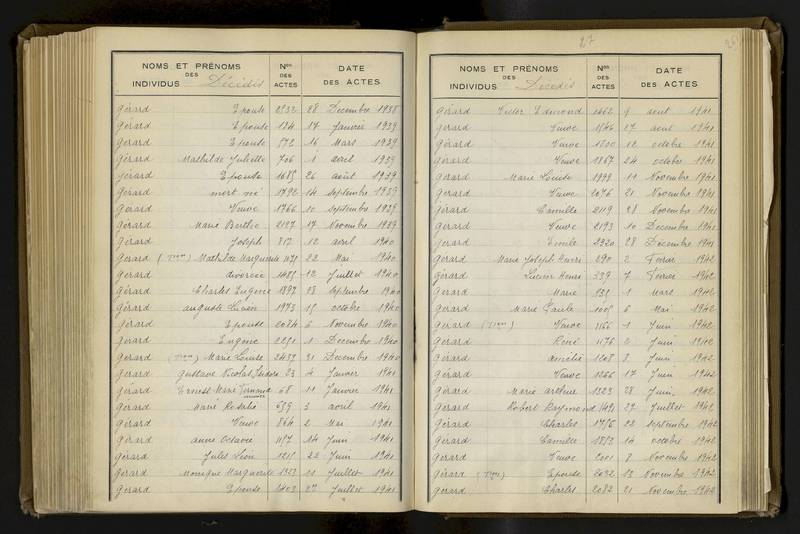 NOMS ET PRÉNOMS DES INDIVIDUS Décédés Nos DES ACTES DATE DES ACTES
Gérard Epouse 2932 28 Decembre 1938
Gérard Epouse 134 17 Janvier 1939
Gérard Epouse 572 16 Mars 1939
Gérard Mathilde Juliette 706 1 avril 1939
Gérard Epouse 1685 26 août 1939
Gérard mort né 1792 14 septembre 1939
Gérard Veuve 1766 10 septembre 1939
Gérard Marie Berthe 2127 17 Novembre 1939
Gérard Joseph 817 12 avril 1940
Gérard Mathilde Marguerite 22 Mai 1940
Gérard divorcée 1485 12 Juillet 1940
Gérard Charles Eugène 1897 18 septembre 1940
Gérard auguste Lucien 1973 15 octobre 1940
Gérard Epouse 2084 6 Novembre 1940
Gérard Eugène 1 Decembre 1940
Gérard Marie Louise 2439 31 Decembre 1940
Gérard Gustave Nicolas Isidore 23 4 Janvier 1941
Gérard Ernest Marie Fernand 68 11 Janvier 1941
Gérard Marie Rosalie 659 3 avril 1941
Gérard Veuve 864 2 Mai 1941
Gérard anne Octavie 1157 14 Juin 1941
Gérard Jules Léon 1215 22 Juin 1941
Gérard Monique Marguerite 1323 11 Juillet 1941
Gérard Epouse 1403 27 Juillet 1941
27
NOMS ET PRÉNOMS DES INDIVIDUS Décédés Nos DES ACTES DATE DES ACTES
Gérard Victor Edmond 1462 9 août 1941
Gérard Veuve 1546 27 août 1941
Gérard Veuve 1800 12 octobre 1941
Gérard Veuve 1867 24 octobre 1941
Gérard Marie Louise 1999 11 Novembre 1941
Gérard Veuve 2076 21 Novembre 1941
Gérard Camille 2119 28 Novembre 1941
Gérard Veuve 2193 10 Decembre 1941
Gérard Emile 2320 28 Decembre 1941
Gérard Marie Joseph Henri 290 2 Fevrier 1942
Gérard Lucien Henri 339 7 Fevrier 1942
Gérard Marie 539 1 Mars 1942
Gérard Marie Paule 1005 6 Mai 1942
Gérard Veuve 1166 1 Juin 1942
Gérard René 1176 2 Juin 1942
Gérard amélie 1208 8 Juin 1942
Gérard Veuve 1266 17 Juin 1942
Gérard Marie arthur 1323 28 Juin 1942
Gérard Robert Raymond 1491 27 Juillet 1942
Gérard Charles 1756 22 septembre 1942
Gérard Camille 1853 14 octobre 1942
Gérard Veuve 2001 8 Novembre 1942
Gérard Epouse 2032 13 Novembre 1942
Gérard Charles 2082 21 Novembre 1942